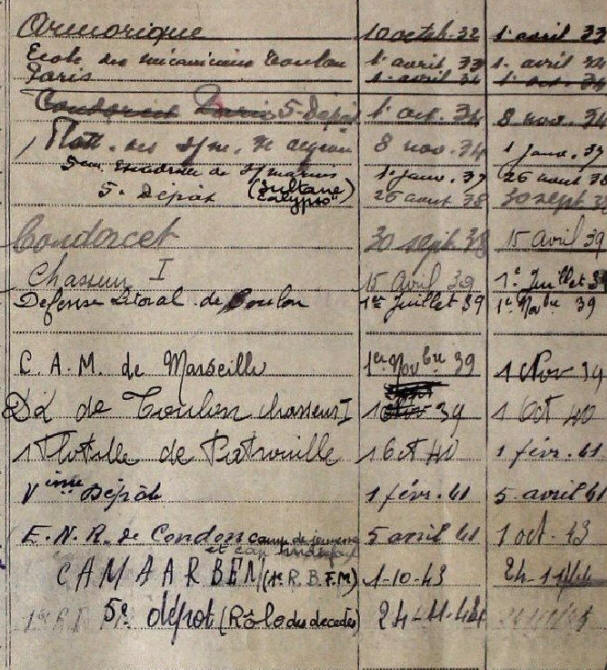 Armorique 10 octob. 32 1 avril 33
Ecole des mécaniciens Toulon 1 avril 33 1 avril 34
Paris 1 avril 34 1 oct. 34
Condorcet Paris 5 Dépôt 1 oct. 34 8 nov. 34
Flott. des 8 nov. 34 1 janv. 37
5eme Escadrille de S/marins 1 janv. 37 26 aout 38
5e Dépôt (Sultane Calypso) 26 aout 38 30 sept 38
Condorcet 30 sept. 38 15 avril 39
Chasseur I 15 Avril 39 1e Juillet 39
Defense Litoral de Toulon 1er Juillet 39 1e Novbre 39
C.A.M. de Marseille 1er Novbre 39 1 Nov 39
DL de Toulon chasseur I 1 39 1 Oct 40
1 Flotille de Patrouille 1 Oct 40 1 févr. 41
Vième Dépôt 1 févr. 41 5 avril 41
E.N.R. de Condon camp de jeunesse 5 avril 41 1 oct. 43
et cap
CAMA ARBEN (1er R.B.F.M) 1-10-43 24-11-44
5e dépôt (Rôle des décédés) 24-11-44